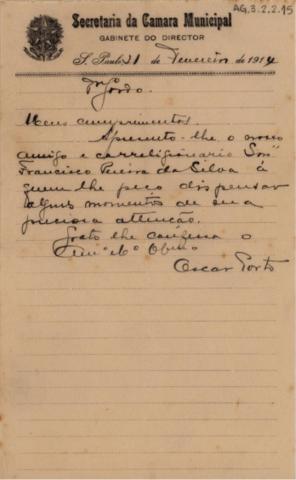 AG.3.2.2.15
Secretaria da Camara Municipal
GABINETE DO DIRECTOR
S. Paulo 21 de Fevereiro de 1914
Dr Gordo.
Meus cumprimentos.
Apresento-lhe o nosso
amigo e correligionario Snr
Francisco Pereira da Silva á
quem lhe peço dispensar
alguns momentos de sua
preciosa attenção.
Grato lhe
Oscar Porto